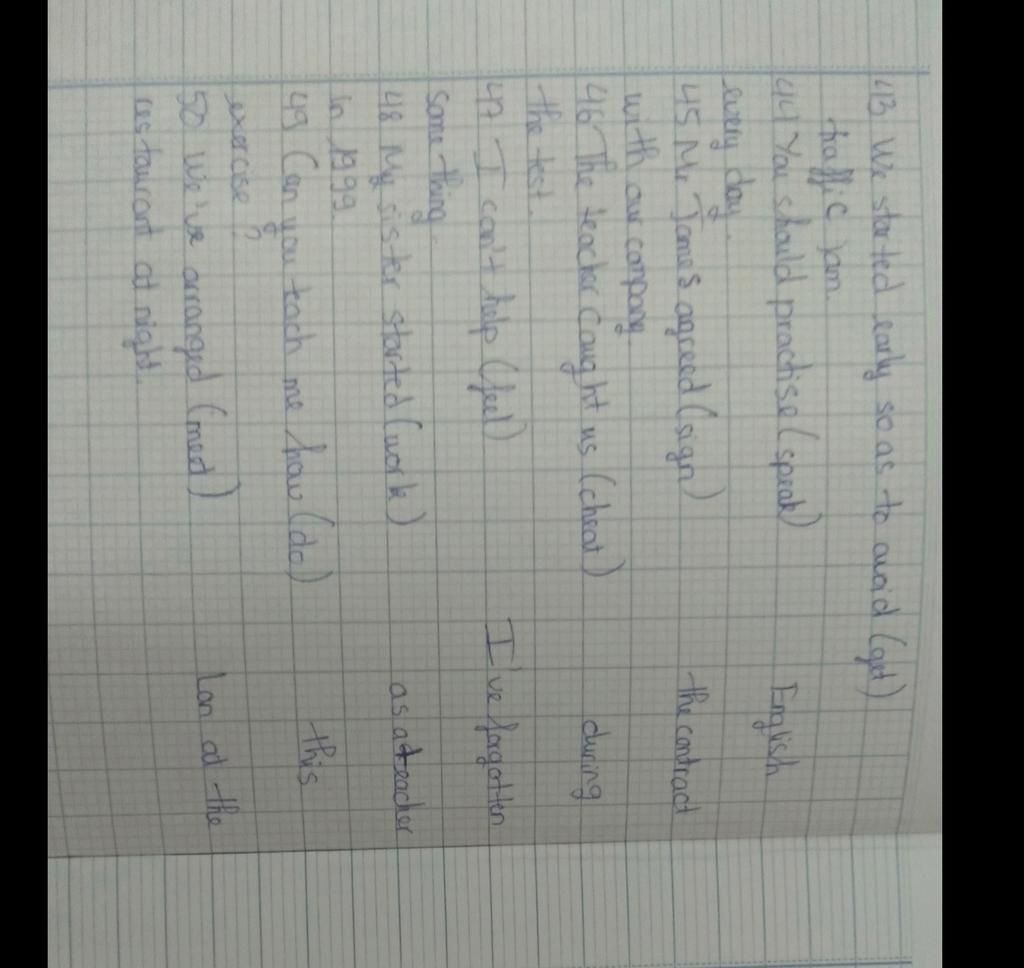 43 We started early so as to avoid (get)
traffic jam.
44 You should practise (speak) English
every day.
45 Mr Jones agreed (sign) the contract
with our company
46 The teacher caught us (cheat) during
the test.
47 I can't help (feel) I've forgotten
something.
48 My sister started (work) as a teacher
in 1999.
49 Can you teach me how (do) this
exercise?
50 We've arranged (meet) Lan at the
restaurant at night.